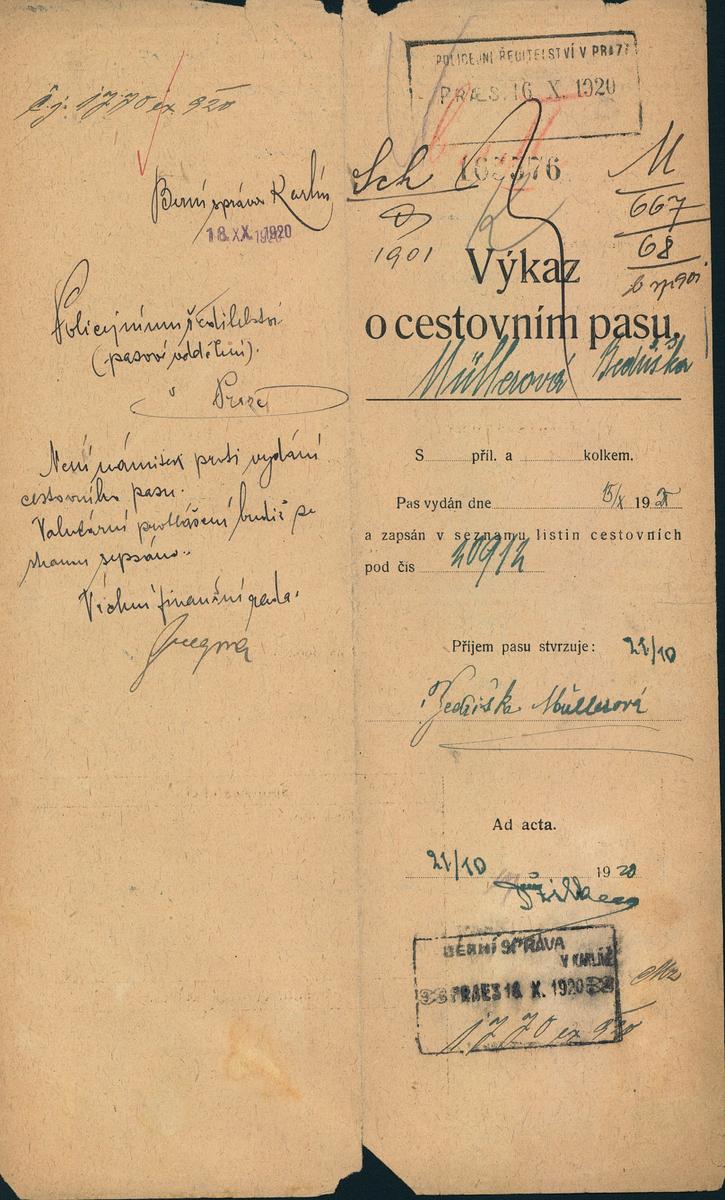 Č.j. 1770 ex 920
Berní správa Karlín
18. X. 1920
Policejnímu ředitelství
(pasové oddělení).
v Praze
Není námitek proti vydání
cestovního pasu.
Valutární prohlášení budiž se
stranou sepsáno.
Vrchní finanční rada:
POLICEJNÍ ŘEDITELSTVÍ V PRAZE
PRÆS. 16 X. 1920
163376
Sch
8
1901
M
667
68
Výkaz
o cestovním pasu.
Müllerová Bedřiška
S příl. a kolkem.
Pas vydán dne 15/X 19 20
a zapsán v seznamu listin cestovních
pod čís 20912
Příjem pasu stvrzuje: 21/10
Bedřiška Müllerová
Ad acta.
21/10 19 20
BERNÍ SPRÁVA
V KARLÍNĚ
PRAES 18. X. 1920
1770 ex 920